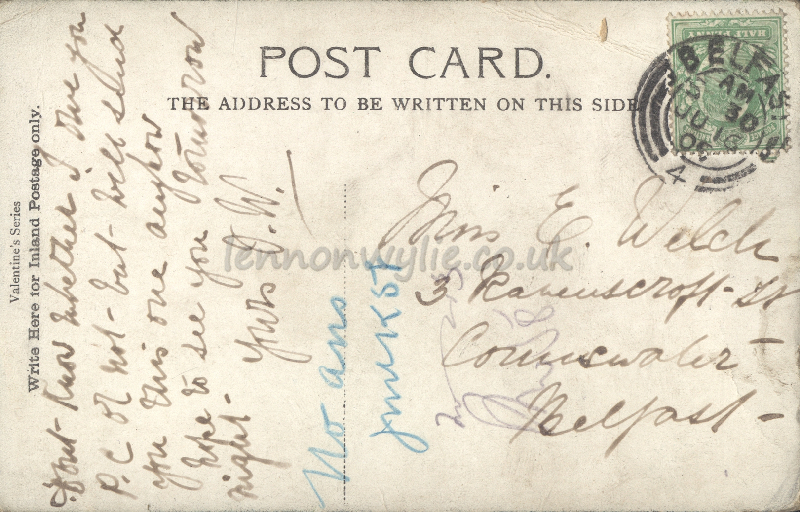 POST CARD.
THE ADDRESS TO BE WRITTEN ON THIS SIDE
HALF PENNY
BELFAST
AM
30
JU 16
05
4
Valentine's Series
Write Here for Inland Postage only.
Dont know whether I owe you
P.C or not- but will send
you this one anyhow
Hope to see you tomorrow
night-
Yours
W.
Miss E. Welch
3 Ravenscroft-St
Connswater-
Belfast-
No ans
lennonwylie.co.uk